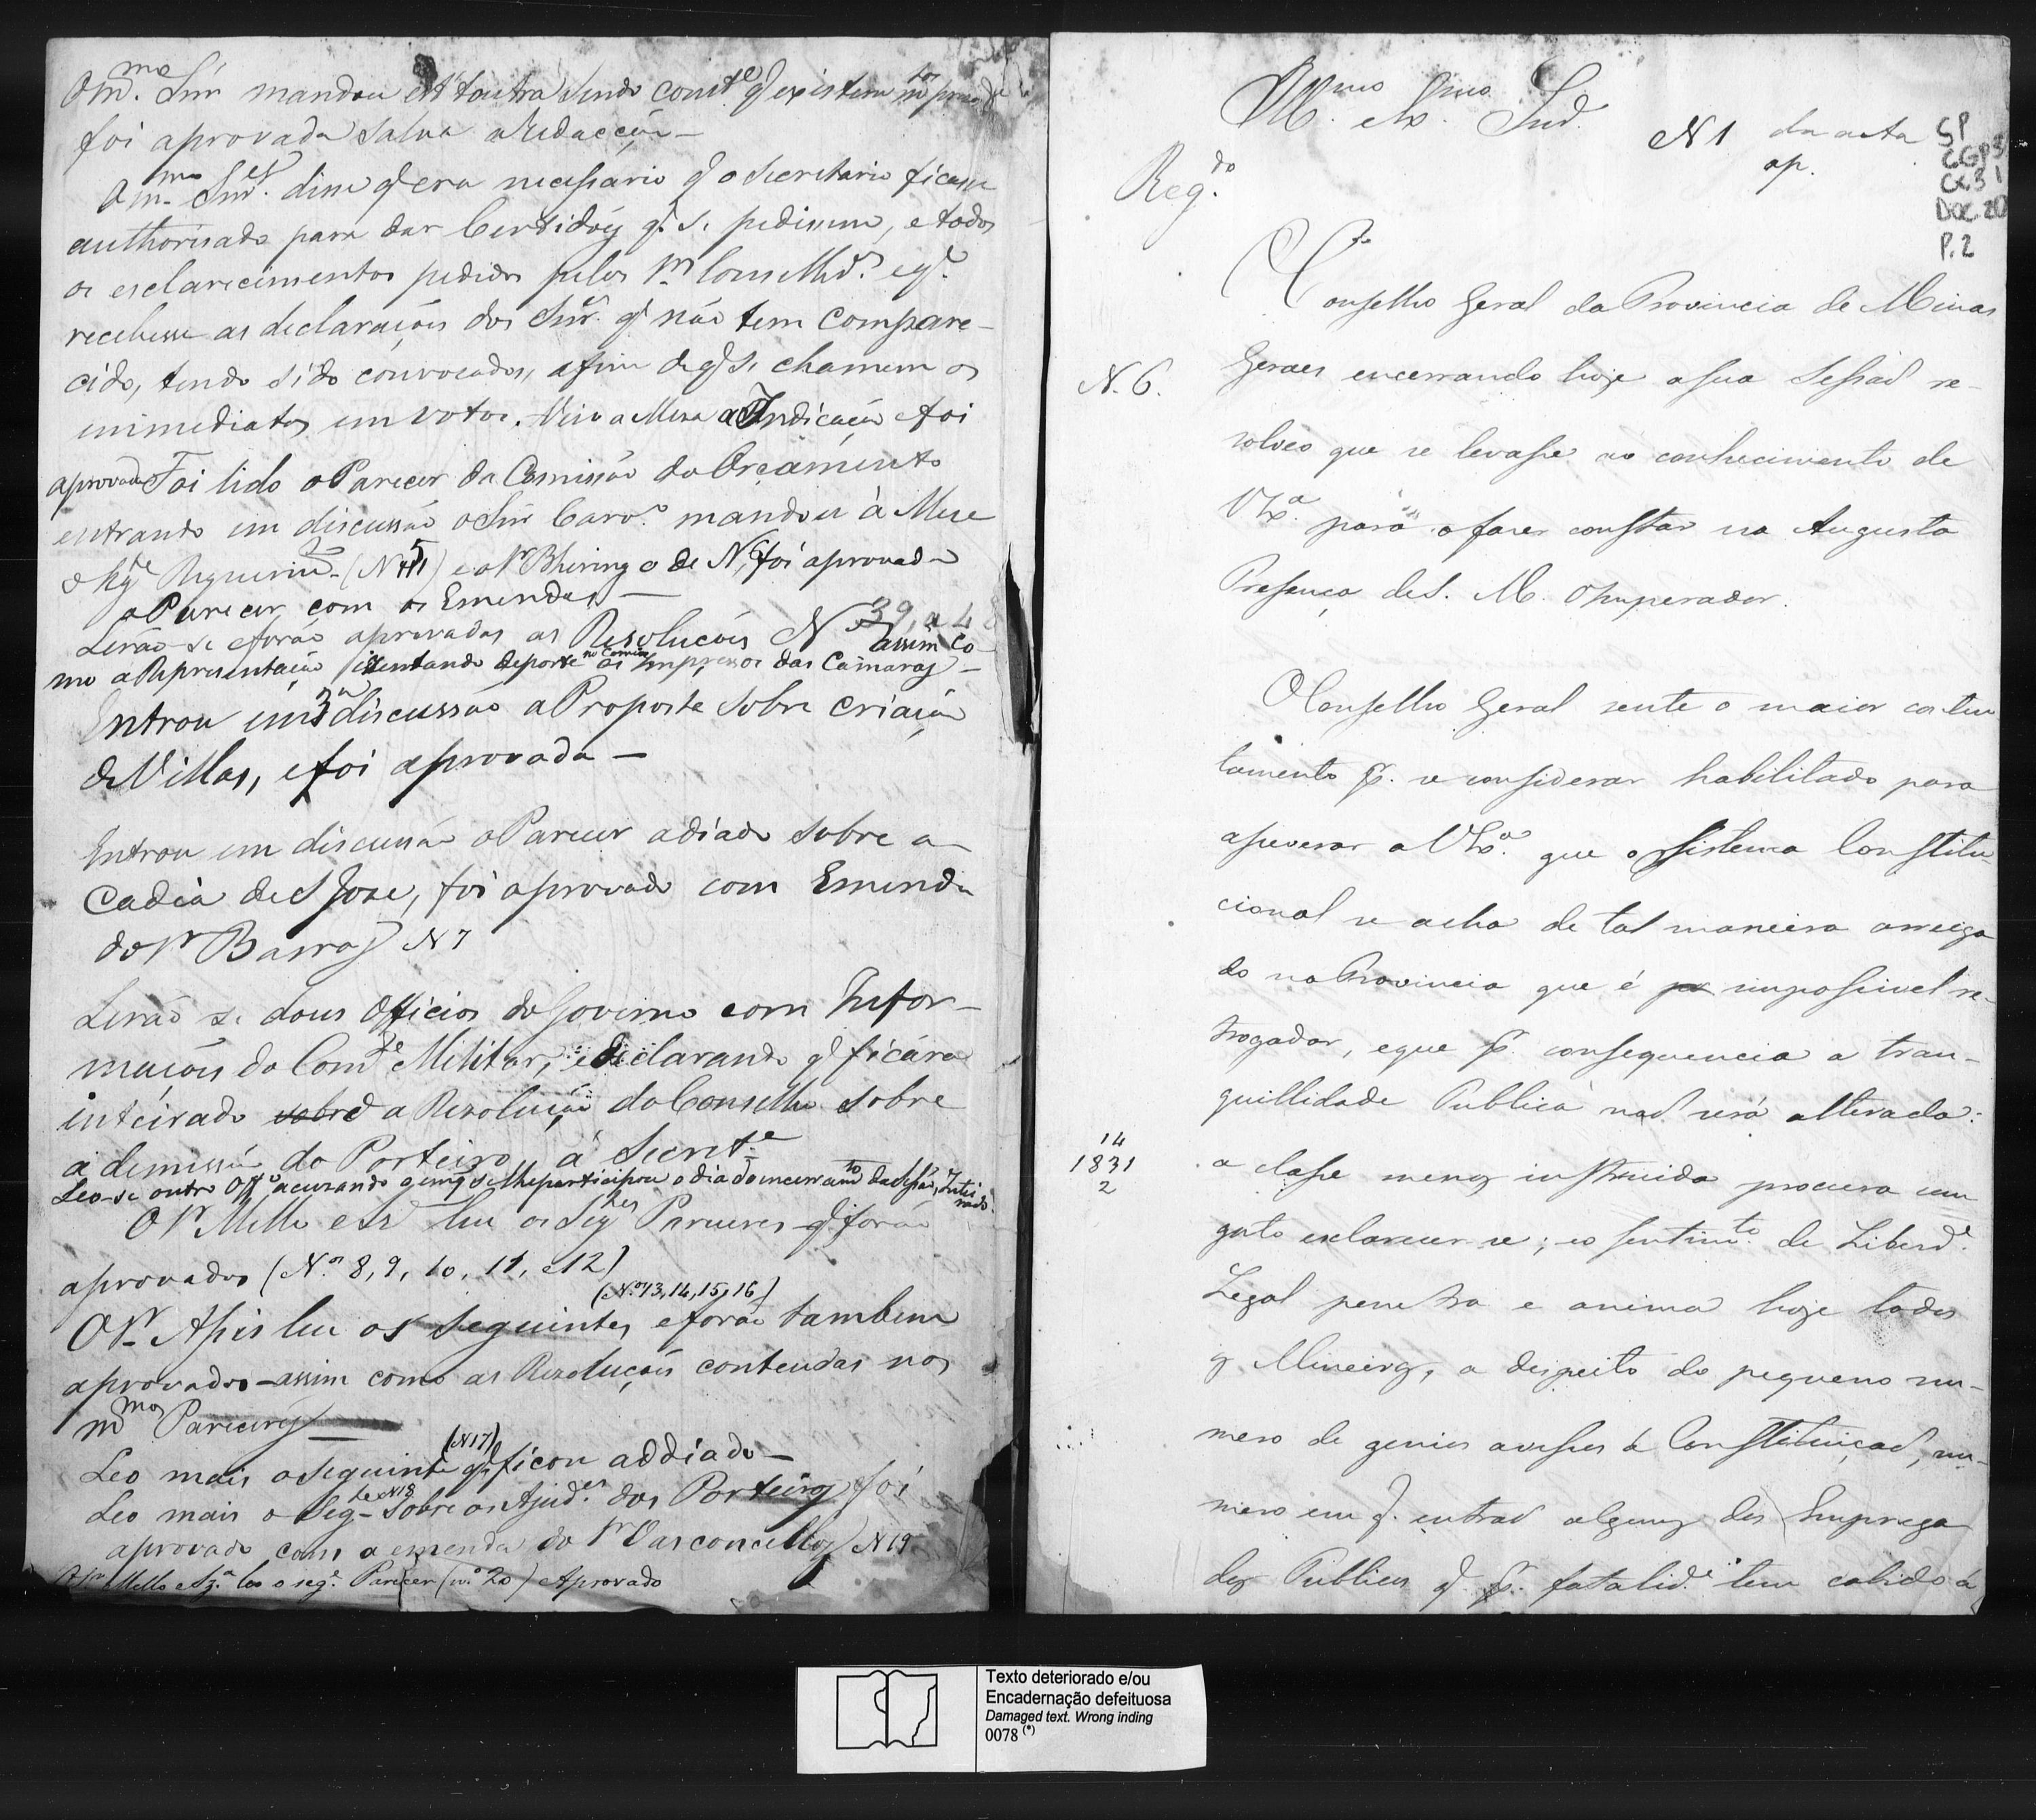 O m.mo Snr mandou esta outra sendo const.e q existem no
foi aprovada salva a redacção —
O m.mo Snr. disse q era necessario q o Secretario ficasse
authorisado para dar Certidoẽs q. se pedissem, e todos
os esclarecimentos pedidos pelos Sr. Conselhr.os e q.
recebesse as declaraçoẽs dos Snr.es q não tem compare-
cido, tendo sido convocados, afim de q se chamem os
immediatos em votos. Veio a Mesa a Indicação e foi
aprovada Foi lido o Parecer da Comissão do Orçamento
entrando em discussão o Snr Carv.o mandou à Mesa
o seg.e Requerim.to (N 5) e o Sr Bhering o de N 6, foi aprovado
o Parecer com as Emendas —
Lerão-se e forão aprovadas as Resoluçoẽs N 39, a 48 assim co-
mo a Representação isentando de porte no Correio os Impressos das Camaras —
Entrou em 3a discussão a Proposta sobre criação
de Villas, e foi aprovada —
Entrou em discussão o Parecer adiado sobre a
Cadêa de S Jose, foi aprovado com Emenda
do Sr Barros N 7
Lerão se dous Officios do Governo com Infor-
maçoẽs do Com.de Militar, e declarando q ficára
inteirado sobre a Resolução do Conselho sobre
a demissão do Porteiro, á Secret.e
Leo-se outro Off.o acuzando q em q se lhe participou o dia do encerram.to da Sessão, Intei
rado.
O Sr Mello e Sz.a leu os Seg.tes Pareceres q forão
aprovados (N.os 8, 9, 10, 11, e 12)
(N.os 13, 14, 15, 16)
O Sr Assis leu os seguintes, e forão tambem
aprovados — assim como as Resoluçoẽs contendas nos
m.mos Pareceres
(N 17)
Leo mais o seguinte q ficou addiado —
Leo mais o Seg.te N18 sobre os Ajud.es dos Porteiros foi
aprovado com a emenda do Sr Vasconcellos N 19
O Sr Mello e Sz.a leo o seg.e Parecer (n.o 20) e Aprovado
Ill.mo Exmo Snr.
N 1 da acta
ap.
SP
CGP3
CX.31
DOC.20
P.2
Reg.do
O Conselho Geral da Provincia de Minas
N. 6.
Geraes encerrando hoje a sua Sessaõ re-
solveo que se levasse ao conhecimento de
VEx.a para o fazer constar na Augusta
Presença de S. M. O Imperador.
O Conselho Geral sente o maior conten
tamento p. se considerar habilitado para
asseverar a VEx.a que o Sistema Constitu
cional se acha de tal maneira arreiga
do na Provincia que é impossivel re-
trogadar, e que p. consequencia a tran-
quillidade Publica naõ será alterada:
14
1831
2
a classe menos instruida procura com
gosto esclarecer-se; e o sentim.to de Liberd.e
Legal penetra e anima hoje todos
os Mineiros, a despeito do pequeno nu-
mero de genios avessos á Constituiçaõ, nu-
mero em q. entraõ alguns dos Emprega
dos Publicos q. p. fatalid.e tem cabido á
Texto deteriorado e/ou
Encadernação defeituosa
Damaged text. Wrong inding
0078 (*)